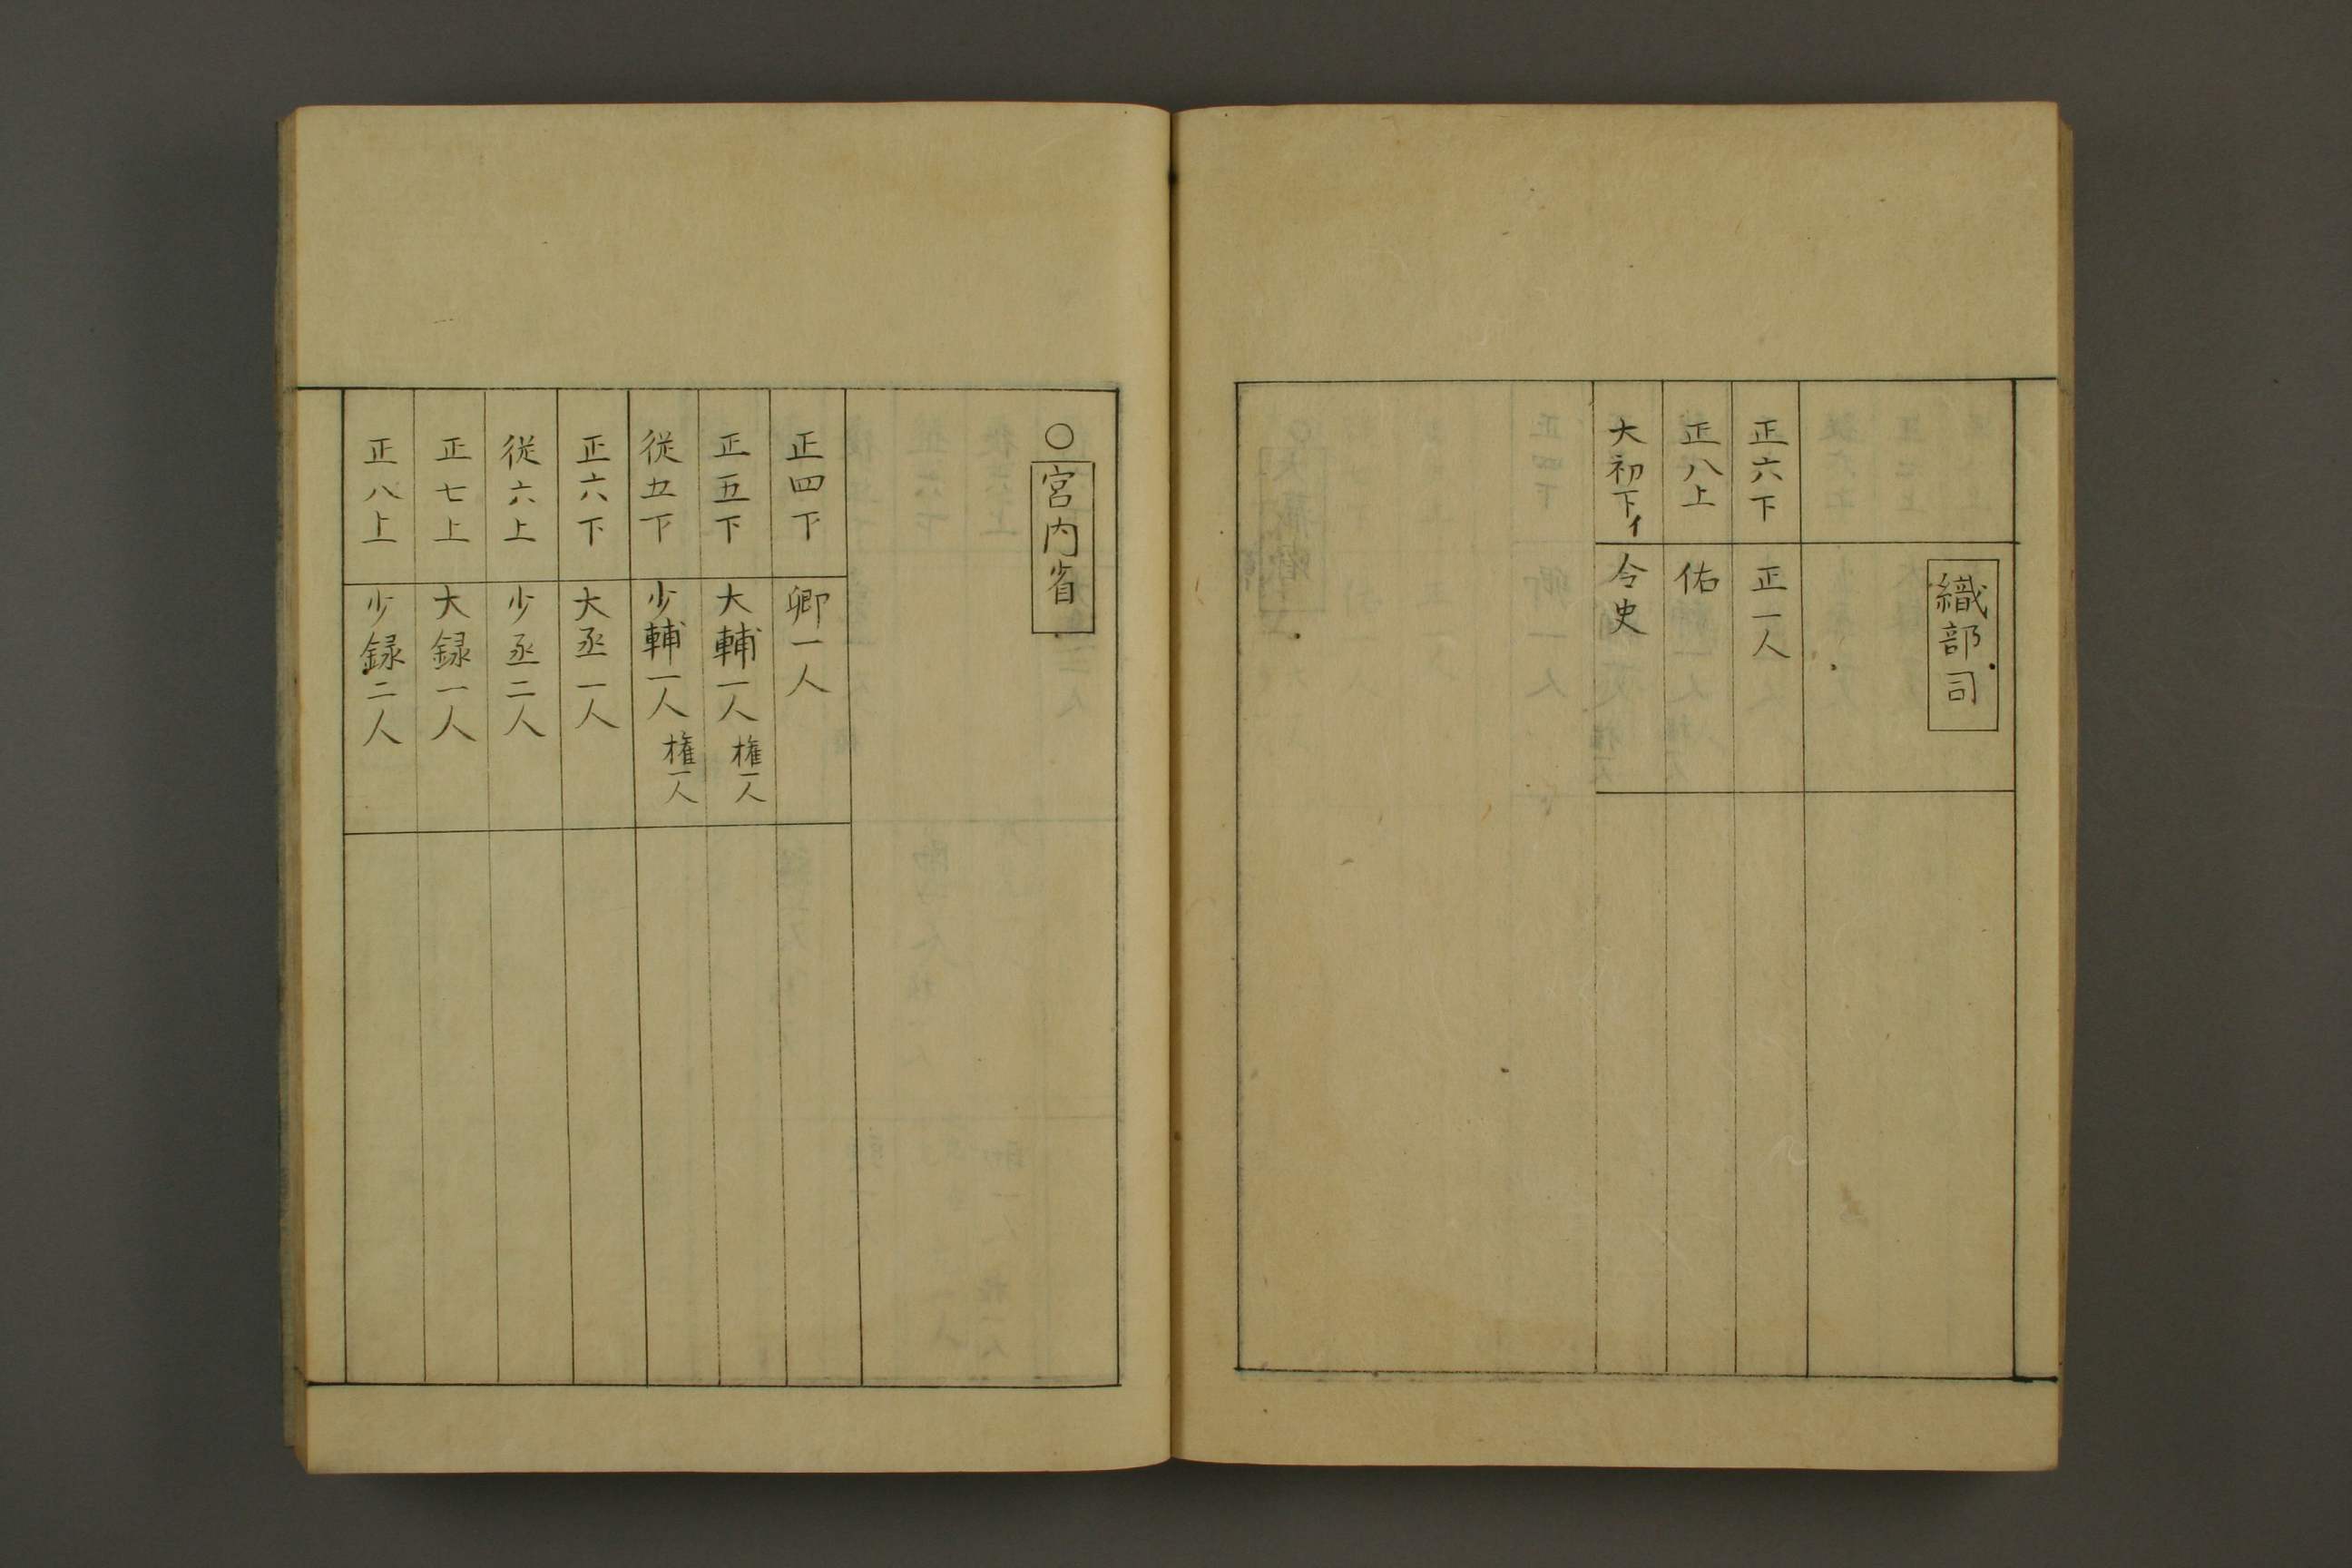 織部司
正六下 正一人
正八上 佑
大初下イ 令史
〇宮内省
正四下 卿一人
正五下 大輔一人 権一人
従五下 少輔一人 権一人
正六下 大丞一人
従六上 少丞二人
正七上 大録一人
正八上 少録二人